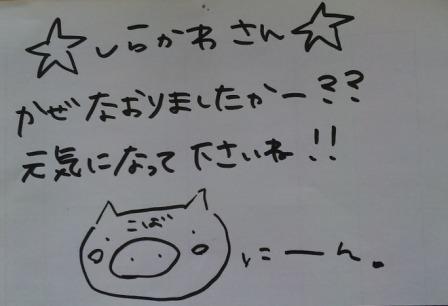 ☆しらかわさん☆
かぜなおりましたかー??
元気になって下さいね!!
こば
にーん。